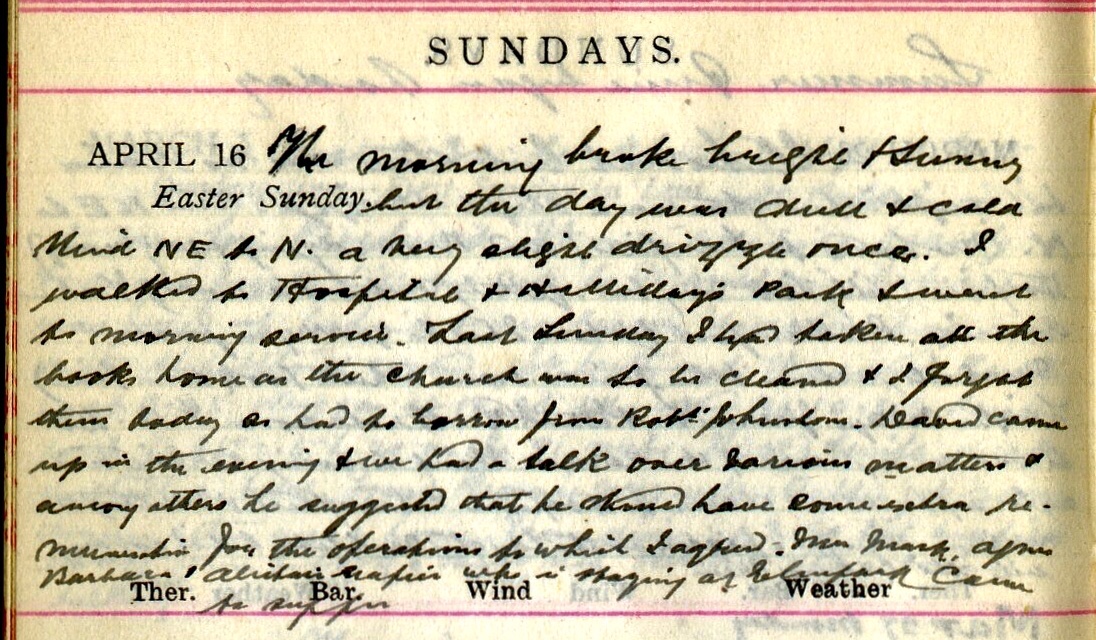 SUNDAYS.
APRIL 16 The morning broke bright & sunny
Easter Sunday. but the day was dull & cold
Wind NE to N. a very slight drizzle once. I
walked to Hospital & Halliday's Park & went
to morning service. Last Sunday I had taken all the
books home as the church was to be cleaned & I forgot
them today as had to borrow from Robt. Johnstone. David came
up in the evening & we had a talk over various matters &
among others he suggested that he should have some extra re-
muneration for the operations to which I agreed. Mark, Agnes
Barbara & who is staying at came
Ther. Bar. Wind Weather
to supper